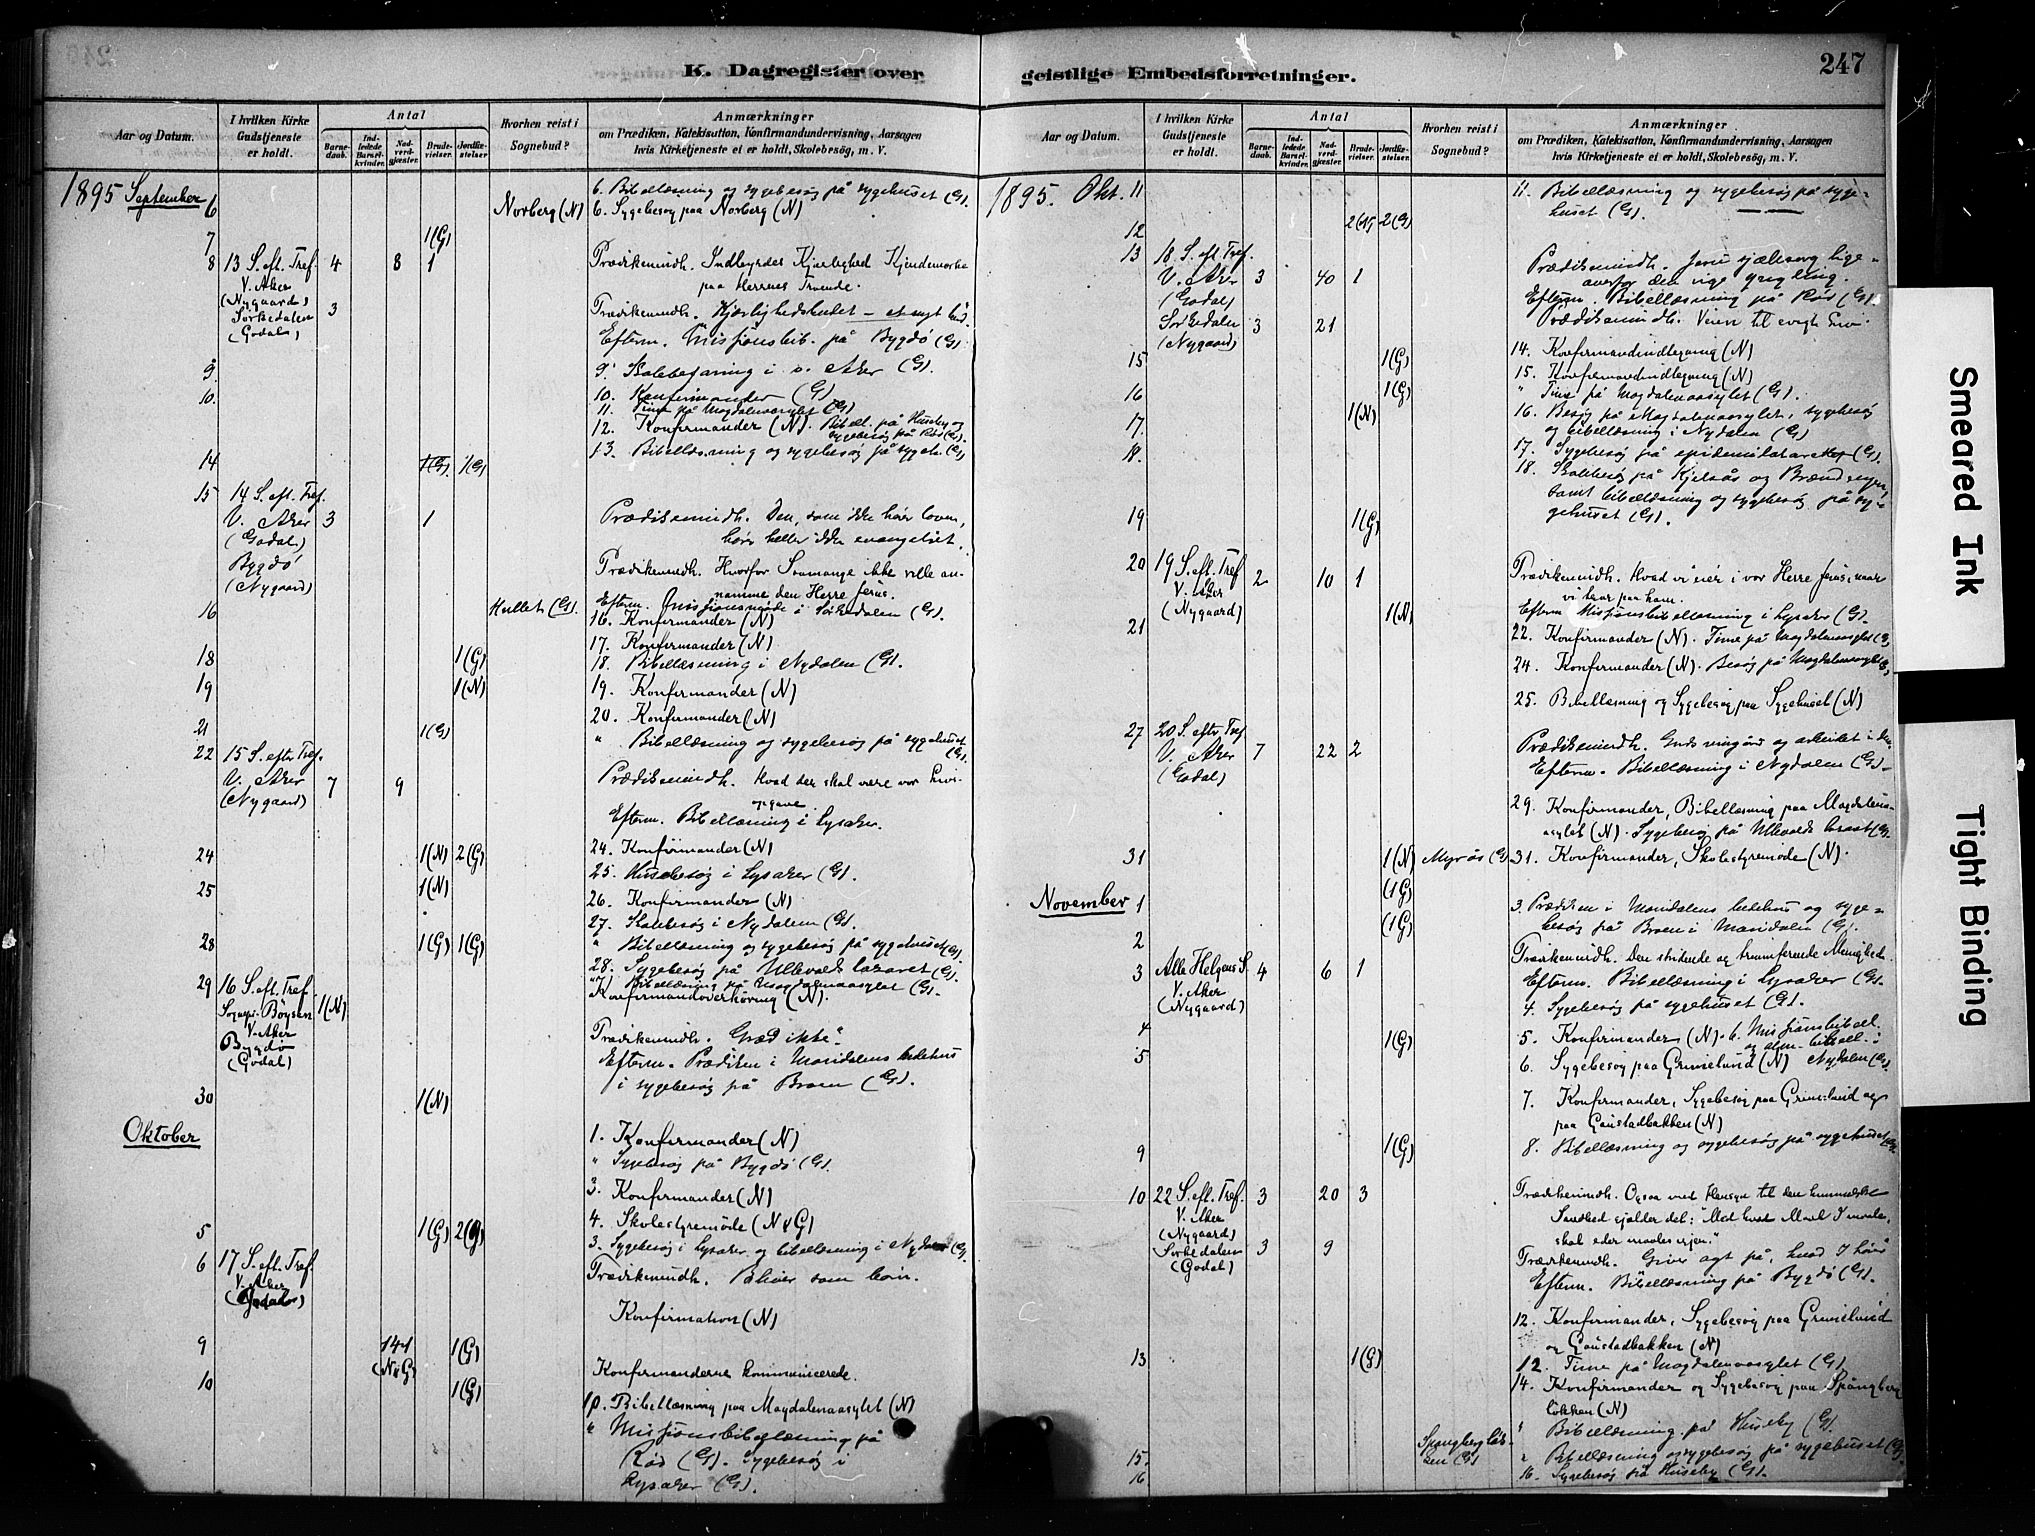 K. Dagregister over
Aar og Datum.
I hvilken Kirke Gudstjeneste er holdt.
Antal
Barnedaab.
Indledede Barselkvinder.
Nadverdgjæster.
Brudevielser.
Jordfæstelser
Hvorhen reist i Sognebud?
Anmærkninger
om Prædiken, Katekisation, Konfirmandundervisning, Aarsagen
hvis Kirketjeneste ei er holdt, Skolebesøg, m. V.
1895 September 6 Norberg (N) 6. Bibellæsning og sygebesøg på sygehuset (G).
6. Sygebesøg paa Norberg (N)
7 1(G)
8 13 S. eft. Tref. 4 8 1 Prædikenindh. Indbyrdes Kjærlighed Kjendemærke
V. Aker paa Herrens Troende.
(Nygaard) 3 Prædikenindh. Kjærlighedsbudet – et nyt bud.
Sørkedalen
(Godal) Efterm. Missjonsbib. på Bygdø (G).
9. 9. Skolebefaring i v. Aker (G).
10. 10. Konfirmander (G)
11. Time på Magdalenaasylet (G)
12. Konfirmander (N). Bibell. på Huseby og
sygebesøg på Röd (G).
13. Bibellæsning og sygebesøg på sygeh. (G)
14 1(G) 1(G)
15 14 S. eft. Tref.
V. Aker 3 1 Prædikenindh. Den, som ikke hører loven,
(Godal) hører heller ikke evangeliet.
Bygdö Prædikenindh. Hvorfor Saamange ikke ville an-
(Nygaard) namme den Herre Jesus.
16 Hullet (G). Efterm. Missjonsmøde i Sørkedalen (G).
16. Konfirmander (N)
17. Konfirmander (N)
18 1(G) 18. Bibellæsning i Nydalen (G).
19 1(N) 19. Konfirmander (N)
20. Konfirmander (N)
21 1(G) " Bibellæsning og sygebesøg på sygehuset
(G).
22 15 S. efter Tref.
V. Aker 7 9 Prædikenindh. Hvad der skal være vor Livs-
(Nygaard) opgave.
Efterm. Bibellæsning i Lysaker.
24 1(N) 2(G) 24. Konfirmander (N)
25. Husebesøg i Lysaker (G).
25 1(N) 26. Konfirmander (N)
27. Skolebesøg i Nydalen (G).
28 1(G) 1(G) " Bibellæsning og sygebesøg på sygehuset (G).
28. Sygebesøg på Ullevolds lazaret (G).
29 16 S. eft. Tref. " Bibellæsning på Magdalenaasylet (G).
Sognepr. Böysen 1(N) Konfirmandoverhøring (N).
V. Aker
Bygdø Prædikenindh. Græd ikke.
(Godal) Efterm. Prædiken i Maridalens bedehus
i sygebesøg på Broen (G).
30 1(N)
Oktober 1. Konfirmander (N)
" Sygebesøg på Bygdö (G).
3. Konfirmander (N)
5 1(G) 2(G) 4. Skolestyremöde (N & G)
3. Sygebesøg i Lysaker og bibellæsning i Nydalen (G).
6 17 S. eft. Tref. Prædikenindh. Bliver som børn.
V. Aker
(Godal) Konfirmation (N)
9 141 1(G)
(N&G) Konfirmanderne kommunicerede.
10 1(G)
10. Bibellæsning paa Magdalenaasylet (N)
" Missjonsbibellæsning på
Röd (G). Sygebesøg i
Lysaker (G).
geistlige Embedsforretninger. 247
Aar og Datum.
I hvilken Kirke Gudstjeneste er holdt.
Antal
Barnedaab.
Indledede Barselkvinder.
Nadverdgjæster.
Brudevielser.
Jordfæstelser.
Hvorhen reist i Sognebud?
Anmærkninger
om Prædiken, Katekisation, Konfirmandundervisning, Aarsagen
hvis Kirketjeneste ei er holdt, Skolebesøg, m. V.
1895. Okt. 11 11. Bibellæsning og sygebesøg på syge-
huset (G).
12 2(N) 2(G)
13 18 S. eft. Tref. Prædikenindh. Jesu sjælesorg lige-
V. Aker 3 40 1 overfor den rige yngling.
(Godal) Efterm. Bibellæsning på Röd (G).
Sørkedalen 3 21 Prædikenindh. Veien til evigt Liv.
(Nygaard)
15 1(G) 14. Konfirmandindlægning (N)
15. Konfirmandindlægning (N)
16 1(G) " Time på Magdalenaasylet (G).
17. 1(N) 16. Besøg på Magdalenaasylet, sygebesøg
og bibellæsning i Nydalen (G)
18. 17. Sygebesøg på epidemilazarettet (G).
18. Skolebesøg på Kjelsås og Brænd
samt bibellæsning og sygebesøg på sy-
19 1(G) gehuset (G).
20 19 S. eft. Tref. 2 10 1 Prædikenindh. Hvad vi eier i vor Herre Jesus, naar
V. Aker vi tror paa ham.
(Nygaard) 1(N) Efterm. Missjonsbibellæsning i Lysaker (G).
21 22. Konfirmander (N). Time på Magdalenaasylet (G)
24. Konfirmander (N). Besøg på Magdalenaasylet (G)
25. Bibellæsning og Sygebesøg paa Sygehuset (N)
27 20 S. efter Tref.
V. Aker 7 22 2 Prædikenindh. Guds vingård og arbeidet i den.
(Godal) Efterm. Bibellæsning i Nydalen (G).
29. Konfirmander, Bibellæsning paa Magdalena-
asylet (N). Sygebesøg på Ullevolds lazaret (G).
31 1(N) Myrås (G) 31. Konfirmander, Skolestyremöde (N).
November 1 (1G) 3. Prædiken i Maridalens bedehus og syge-
2 (1G) besøg på Broen i Maridalen (G).
3 Alle Helgens S. 4 6 1 Prædikenindh. Den stridende og triumferende Menighed.
V. Aker Efterm. Bibellæsning i Lysaker (G).
(Nygaard) 4. Sygebesøg på sygehuset (G).
4 1(G) 5. Konfirmander (N). 6. Missjonsbibell.
og alm. bibell. i
5 6. Sygebesøg paa Grimelund (N) Nydalen (G).
7. Konfirmander, Sygebesøg paa Grimelund og
paa Gaustadbakken (N)
9 1(G) 8. Bibellæsning og sygebesøg på sygehuset (G).
10 22 S. eft. Tref. 3 20 3 Prædikenindh. Ogsaa med Hensyn til den himmelske
V. Aker Sandhed gjælder det: "Med hvad Maal I maale,
(Nygaard) skal eder maales igjen."
Sørkedalen 3 9 Prædikenindh. Giver agt på, hvad I hører
(Godal) Efterm. Bibellæsning på Bygdö (G).
12. Konfirmander, Sygebesøg paa Grimelund
og Gaustadbakken (N)
13 1(G) 12. Time på Magdalenaasylet (G)
14. Konfirmander og Sygebesøg paa Spångberg
løkken (N)
Spangberglök-
ken (G) " Bibellæsning på Huseby (G).
15. " Bibellæsning og sygebesøg på sygehuset (G).
16 16. Sygebesøg på Huseby (G).
Smeared Ink
Tight Binding